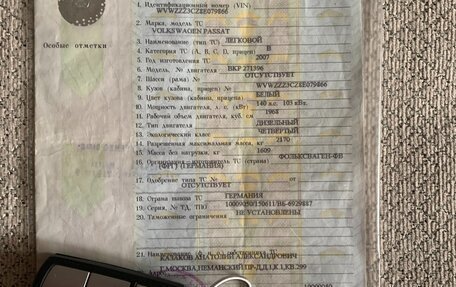 1. Идентификационный номер (VIN)
WVWZZZ3CZ8E079866
2. Марка, модель ТС
VOLKSWAGEN PASSAT
Особые отметки
3. Наименование (тип ТС) ЛЕГКОВОЙ
4. Категория ТС (A, B, C, D, прицеп) B
5. Год изготовления ТС 2007
6. Модель, № двигателя BKP 271396
7. Шасси (рама) № ОТСУТСТВУЕТ
8. Кузов (кабина, прицеп) № WVWZZZ3CZ8E079866
9. Цвет кузова (кабины, прицепа) БЕЛЫЙ
10. Мощность двигателя, л. с. (кВт) 140 л.с. 103 кВт.
11. Рабочий объем двигателя, куб. см 1968
12. Тип двигателя ДИЗЕЛЬНЫЙ
13. Экологический класс ЧЕТВЕРТЫЙ
14. Разрешенная максимальная масса, кг 2170
15. Масса без нагрузки, кг 1609
16. Организация-изготовитель ТС (страна) ФОЛЬКСВАГЕН-ФВ
(ФРГ) (ГЕРМАНИЯ)
17. Одобрение типа ТС № от
ОТСУТСТВУЕТ
18. Страна вывоза ТС ГЕРМАНИЯ
19. Серия, № ТД, ТПО 10009050/150611/В6-6929887
20. Таможенные ограничения НЕ УСТАНОВЛЕНЫ
21. Наименование
КАЗАКОВ АНАТОЛИЙ АЛЕКСАНДРОВИЧ
Г.МОСКВА,НЕМАНСКИЙ ПР-Д,Д.1,К.1,КВ.299